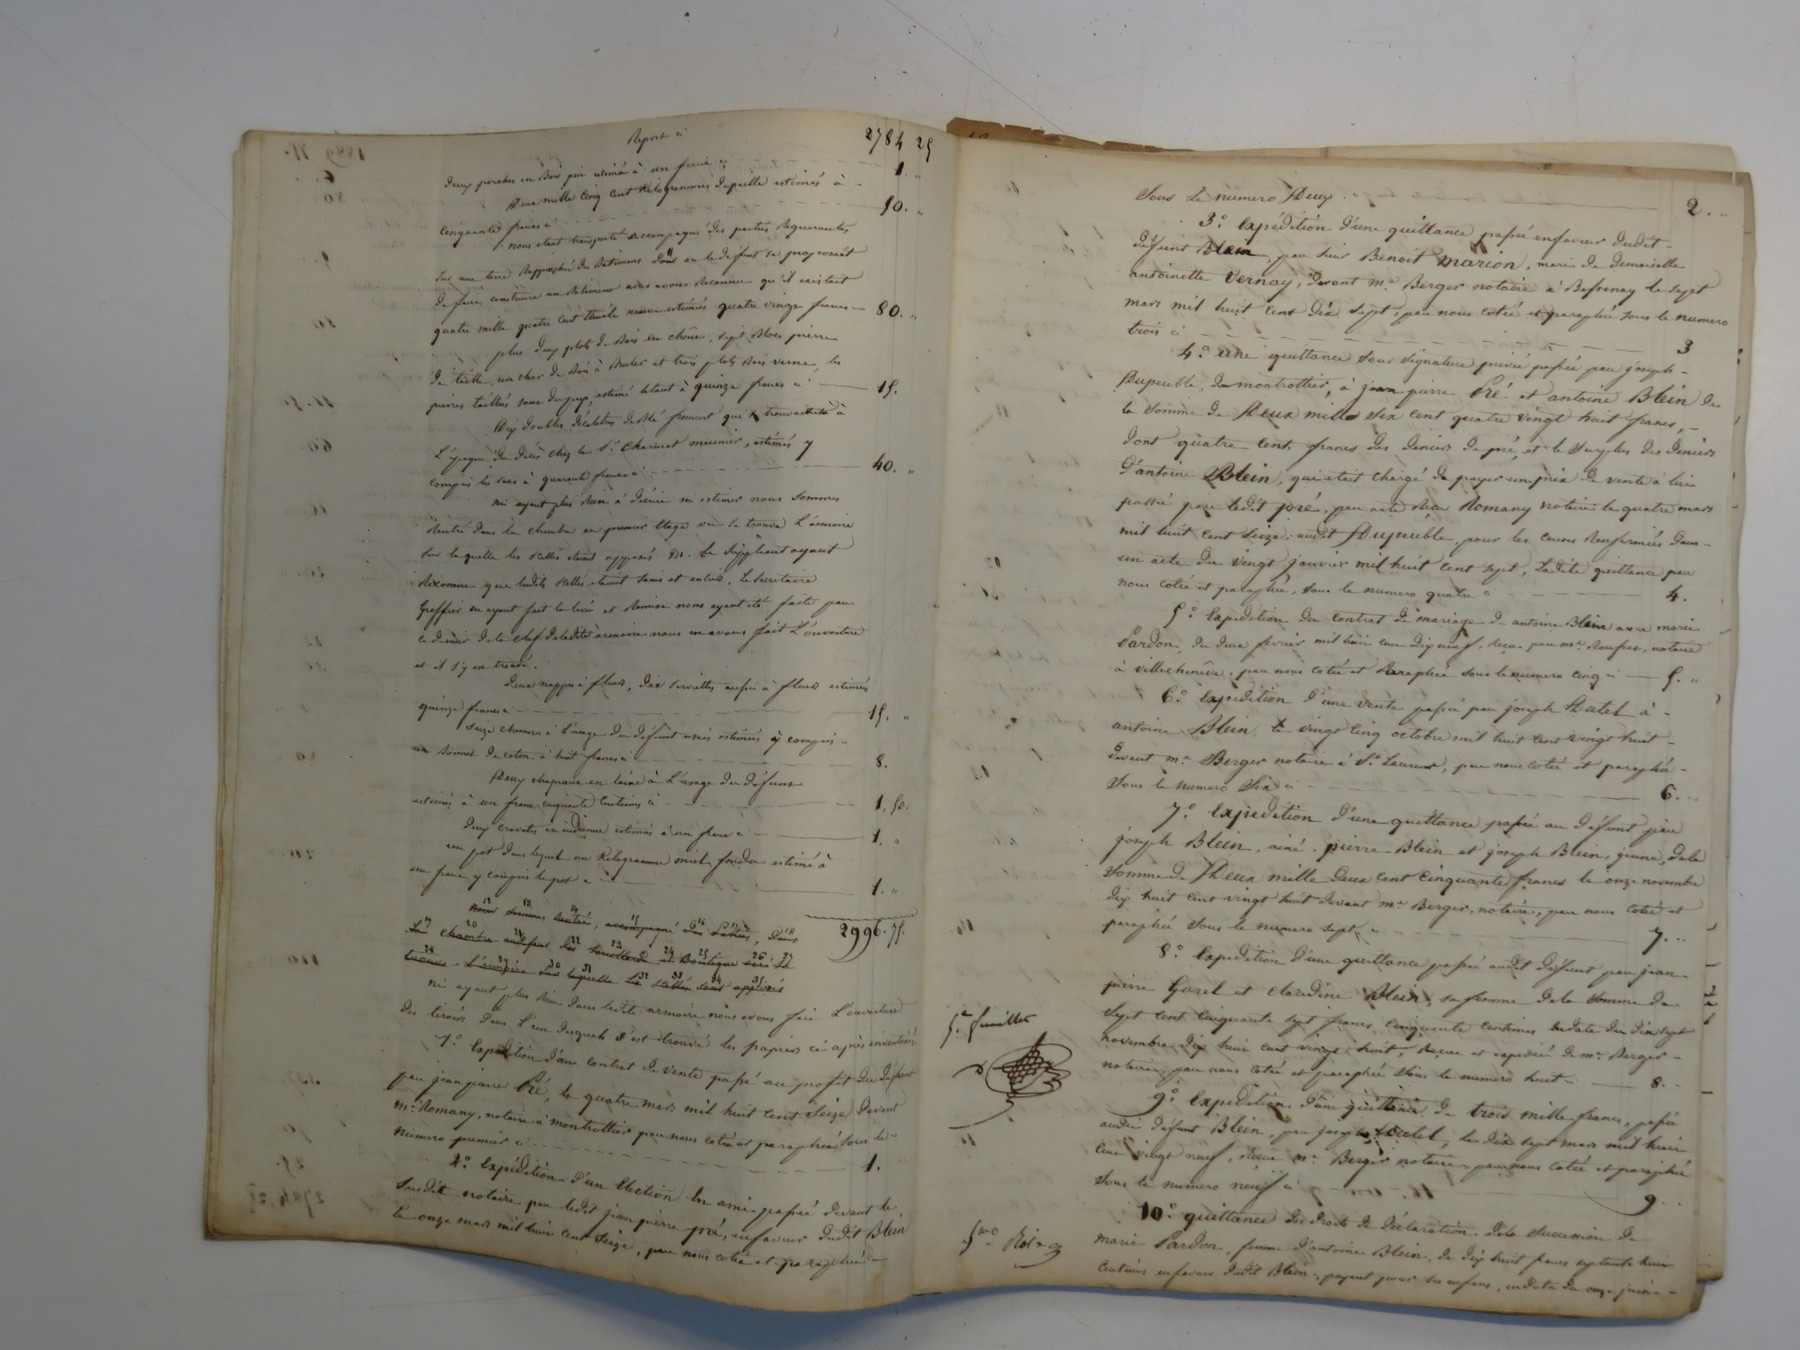 Report ci 2784 25
deux poreches en Bois pin estimé à un franc ci 1. "
deux mille cinq cent Kilogrammes de paille estimés à
cinquante francs ci 50. "
nous étant transporté accompagné des parties Requerantes
sur une terre Rapprochée du Batiment dont ou le defunt se proposait
de faire construire un Batiment nous avons Reconnu qu'il existait
quatre mille quatre cent thuile neuve estimés quatre vingt francs 80. "
plus deux plots de Bois en chêne, sept Blocs pierre
de taille, un char de Bois à Bruler et trois plots Bois verne, les
pierres taillées sont du pays, estimé le tout à quinze francs ci 15.
Dix doubles décalitres de Blé froment qui se trouvaient à
L'époque du décès chez le Sr. meunier, estimés y
compris les sacs à quarante francs ci 40. "
ni ayant plus Rien à décrire ni estimer nous sommes
Rentré dans la chambre au premier étage où se trouve L'armoire
sur laquelle les scellés étaient apposés Le Suppléant ayant
Reconnu que lesdits scellés étaient sains et entiers, Le Secretaire
Greffier en ayant fait la levée et Remise nous ayant été faite par
ce dernier de la clef de ladite armoire nous en avons fait L'ouverture
et il s'y est trouvé.
Deux nappes à fleurs, dix serviettes aussi à fleurs estimées
quinze francs ci 15. "
Seize chemises à L'usage du défunt usées estimées y compris
un Bonnet de coton à huit francs ci 8.
Deux chapeaux en laine à L'usage du défunt
estimés à un franc cinquante Centimes ci 1. 50.
deux cravates en indienne estimées à un franc ci 1. "
un pot dans lequel un Kilogramme miel fondu estimé à
un franc y compris le pot ci 1. "
2996. 75.
Nous sommes Rentré, accompagné des Parties, dans
La chambre audessus de Boutique
L'armoire sur laquelle les scellés sont apposés
ni ayant plus Rien dans ladite armoire nous avons fait L'ouverture
des tiroirs dans l'un desquels s'est trouvé les papiers ci après inventoriés.
1.° Expédition d'un contrat de vente passé au profit du défunt
par jean pierre Pré, le quatre mars mil huit cent Seize devant
me. Romany, notaire à montrottier par nous cotée et paraphée sous le
numero premier ci 1. "
2.° Expédition d'un Election En ami passée devant le
susdit notaire par ledit jean pierre pré, enfaveur dudit Blein
le onze mars mil huit cent Seize, par nous cotée et paraphée
Sous Le numero Deux 2. "
3.° Expédition d'une quittance passée enfaveur dudit
défunt Blein, par Sieur Benoit marion, mari de demoiselle
antoinette Vernay, devant me. Berger notaire à Bessenay le sept
mars mil huit cent dix sept, par nous cotée et paraphée sous le numero
trois ci 3
4.° une quittance sous signature privée passée par joseph
Dupeuble, de montrottier, à jean pierre Pré et antoine Blein de
la Somme de Deux mille six cent quatre vingt huit francs,
dont quatre cent francs des deniers de pré, et le Surplus des deniers
d'antoine Blein, qui était chargé de payer un prix de vente à lui
passée par ledit pré, par acte Reçu Romany notaire le quatre mars
mil huit cent Seize, audit Dupeuble, pour les causes Renfermées dans
un acte du vingt janvier mil huit cent sept, Ladite quittance par
nous cotée et paraphée, sous le numero quatre ci 4.
5.° Expédition du contrat de mariage d'antoine Blein avec marie
Pardon, du deux fevrier mil huit cent dix neuf, Reçu par me. notaire
à villechenêve, par nous cotée et Paraphée sous le numero cinq ci 5. "
6.° Expédition d'une vente passée par joseph Dutel à
antoine Blein, le vingt Cinq octobre mil huit cent vingt huit
devant me. Berger notaire à St. Laurent, par nous cotée et paraphée
sous le numero Six ci 6. "
7.° Expedition d'une quittance passée au défunt par
joseph Blein, ainé, pierre Blein et joseph Blein, jeune, de la
Somme de Deux mille deux cent Cinquante francs le onze novembre
dix huit cent vingt huit devant me. Berger, notaire, par nous cotée et
paraphée sous le numero sept 7. "
8.° Expedition d'une quittance passée audit défunt par jean
pierre Garel et claudine Blein, sa femme de la somme de
Sept cent Cinquante sept francs, cinquante centimes en date du dix sept
novembre dix huit cent vingt huit, Reçue et expédiée de me. Berger
notaire, par nous cotée et paraphée sous le numero huit 8. "
9.° Expedition d'une quittance de trois mille francs, passée
audit défunt Blein, par joseph Dutel, le dix sept mars mil huit
Cent vingt neuf, Reçue me. Berger notaire, par nous cotée et paraphée
sous le numero neuf ci 9. "
5e. feuillet
5me Rôle
10.° quittance des droits de déclaration de la succession de
marie Pardon, femme d'antoine Blein, de dix huit francs septante huit
Centimes enfaveur dudit Blein, payant pour ses enfans, en date du onze juin